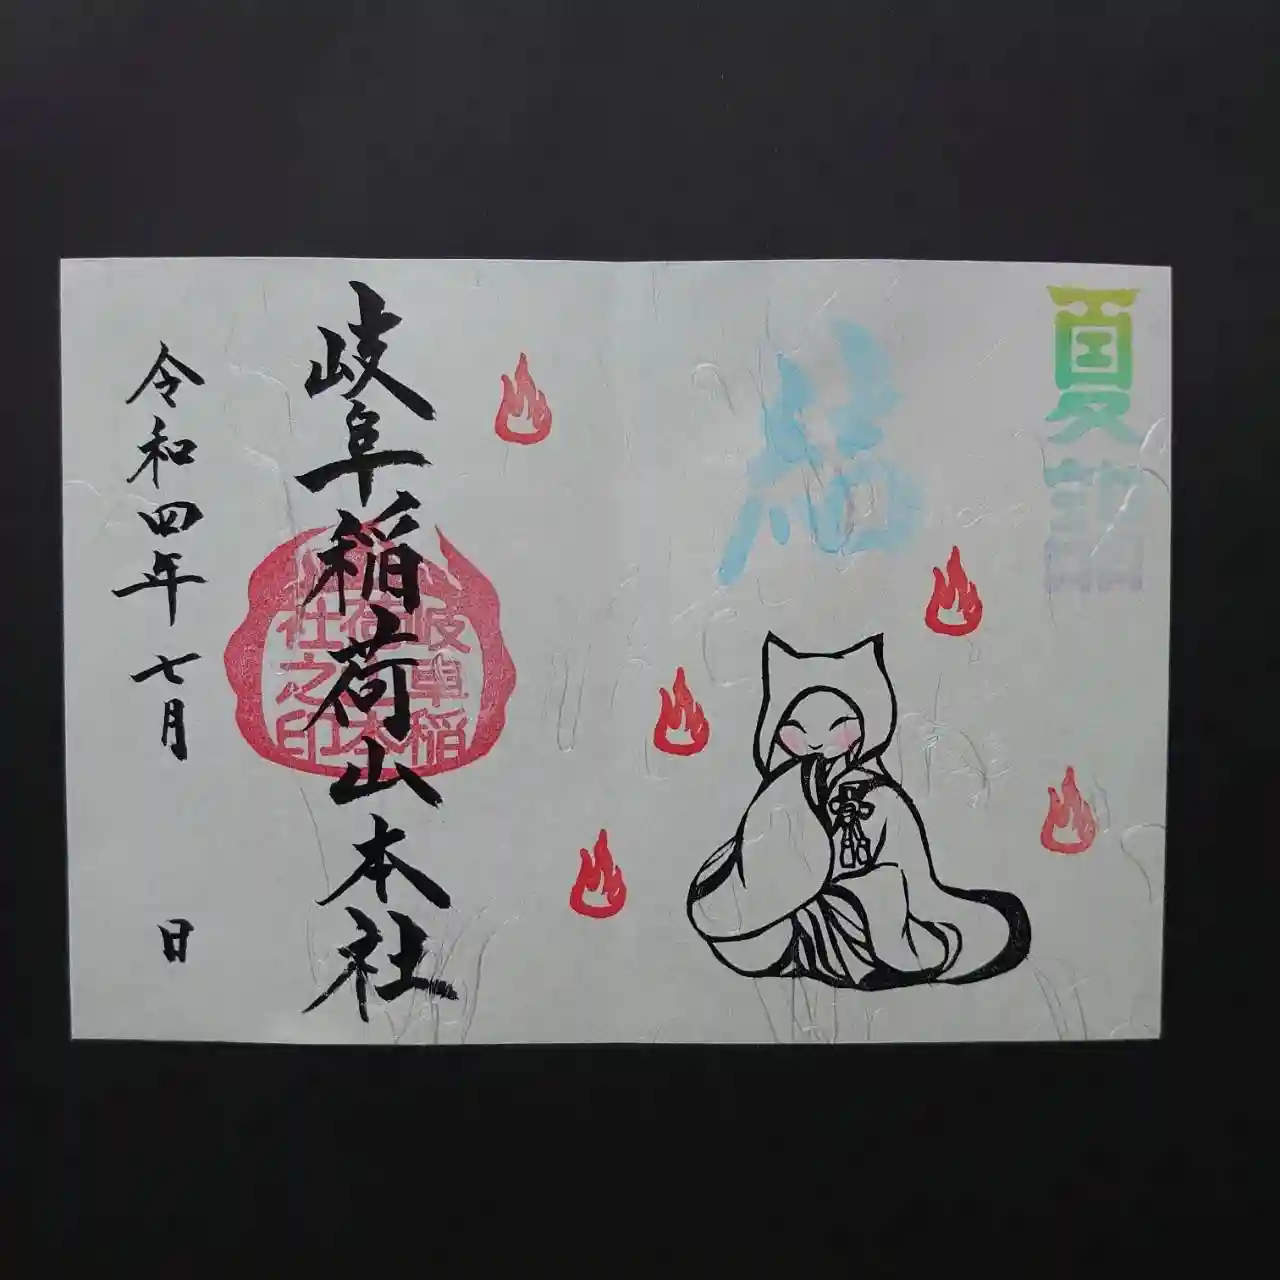 夏詣
結
岐阜稲荷山本社
岐阜稲
荷山本
社之印
令和四年七月 日